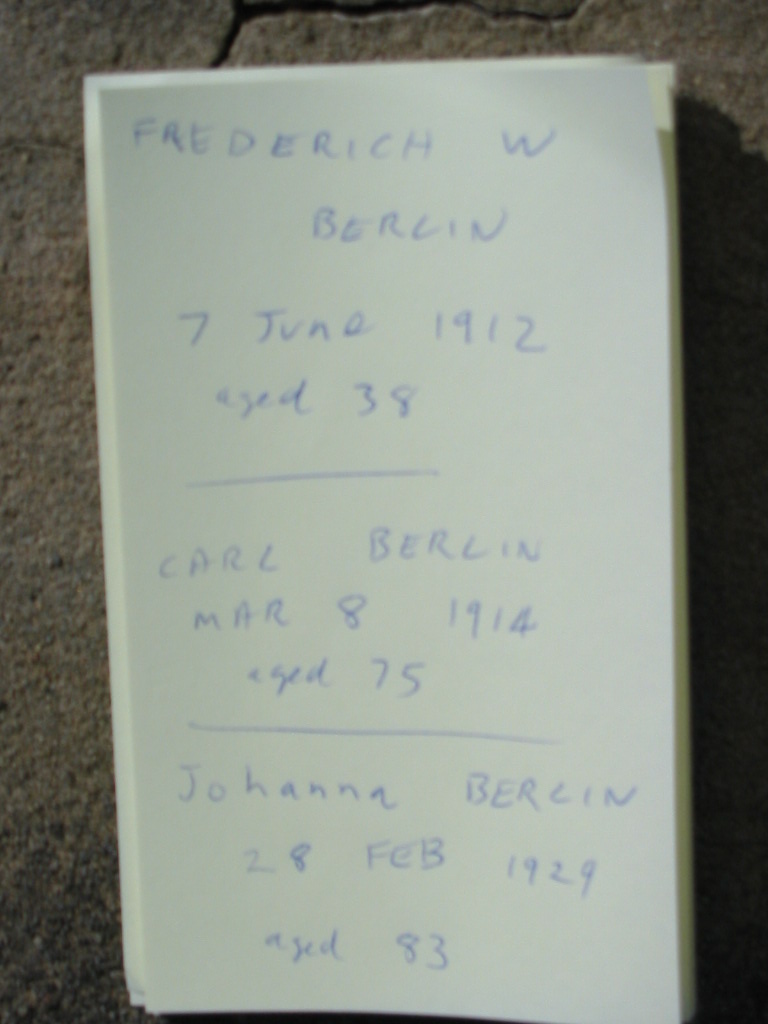 FREDERICH W
BERLIN
7 June 1912
aged 38
CARL BERLIN
MAR 8 1914
aged 75
Johanna BERLIN
28 FEB 1929
aged 83